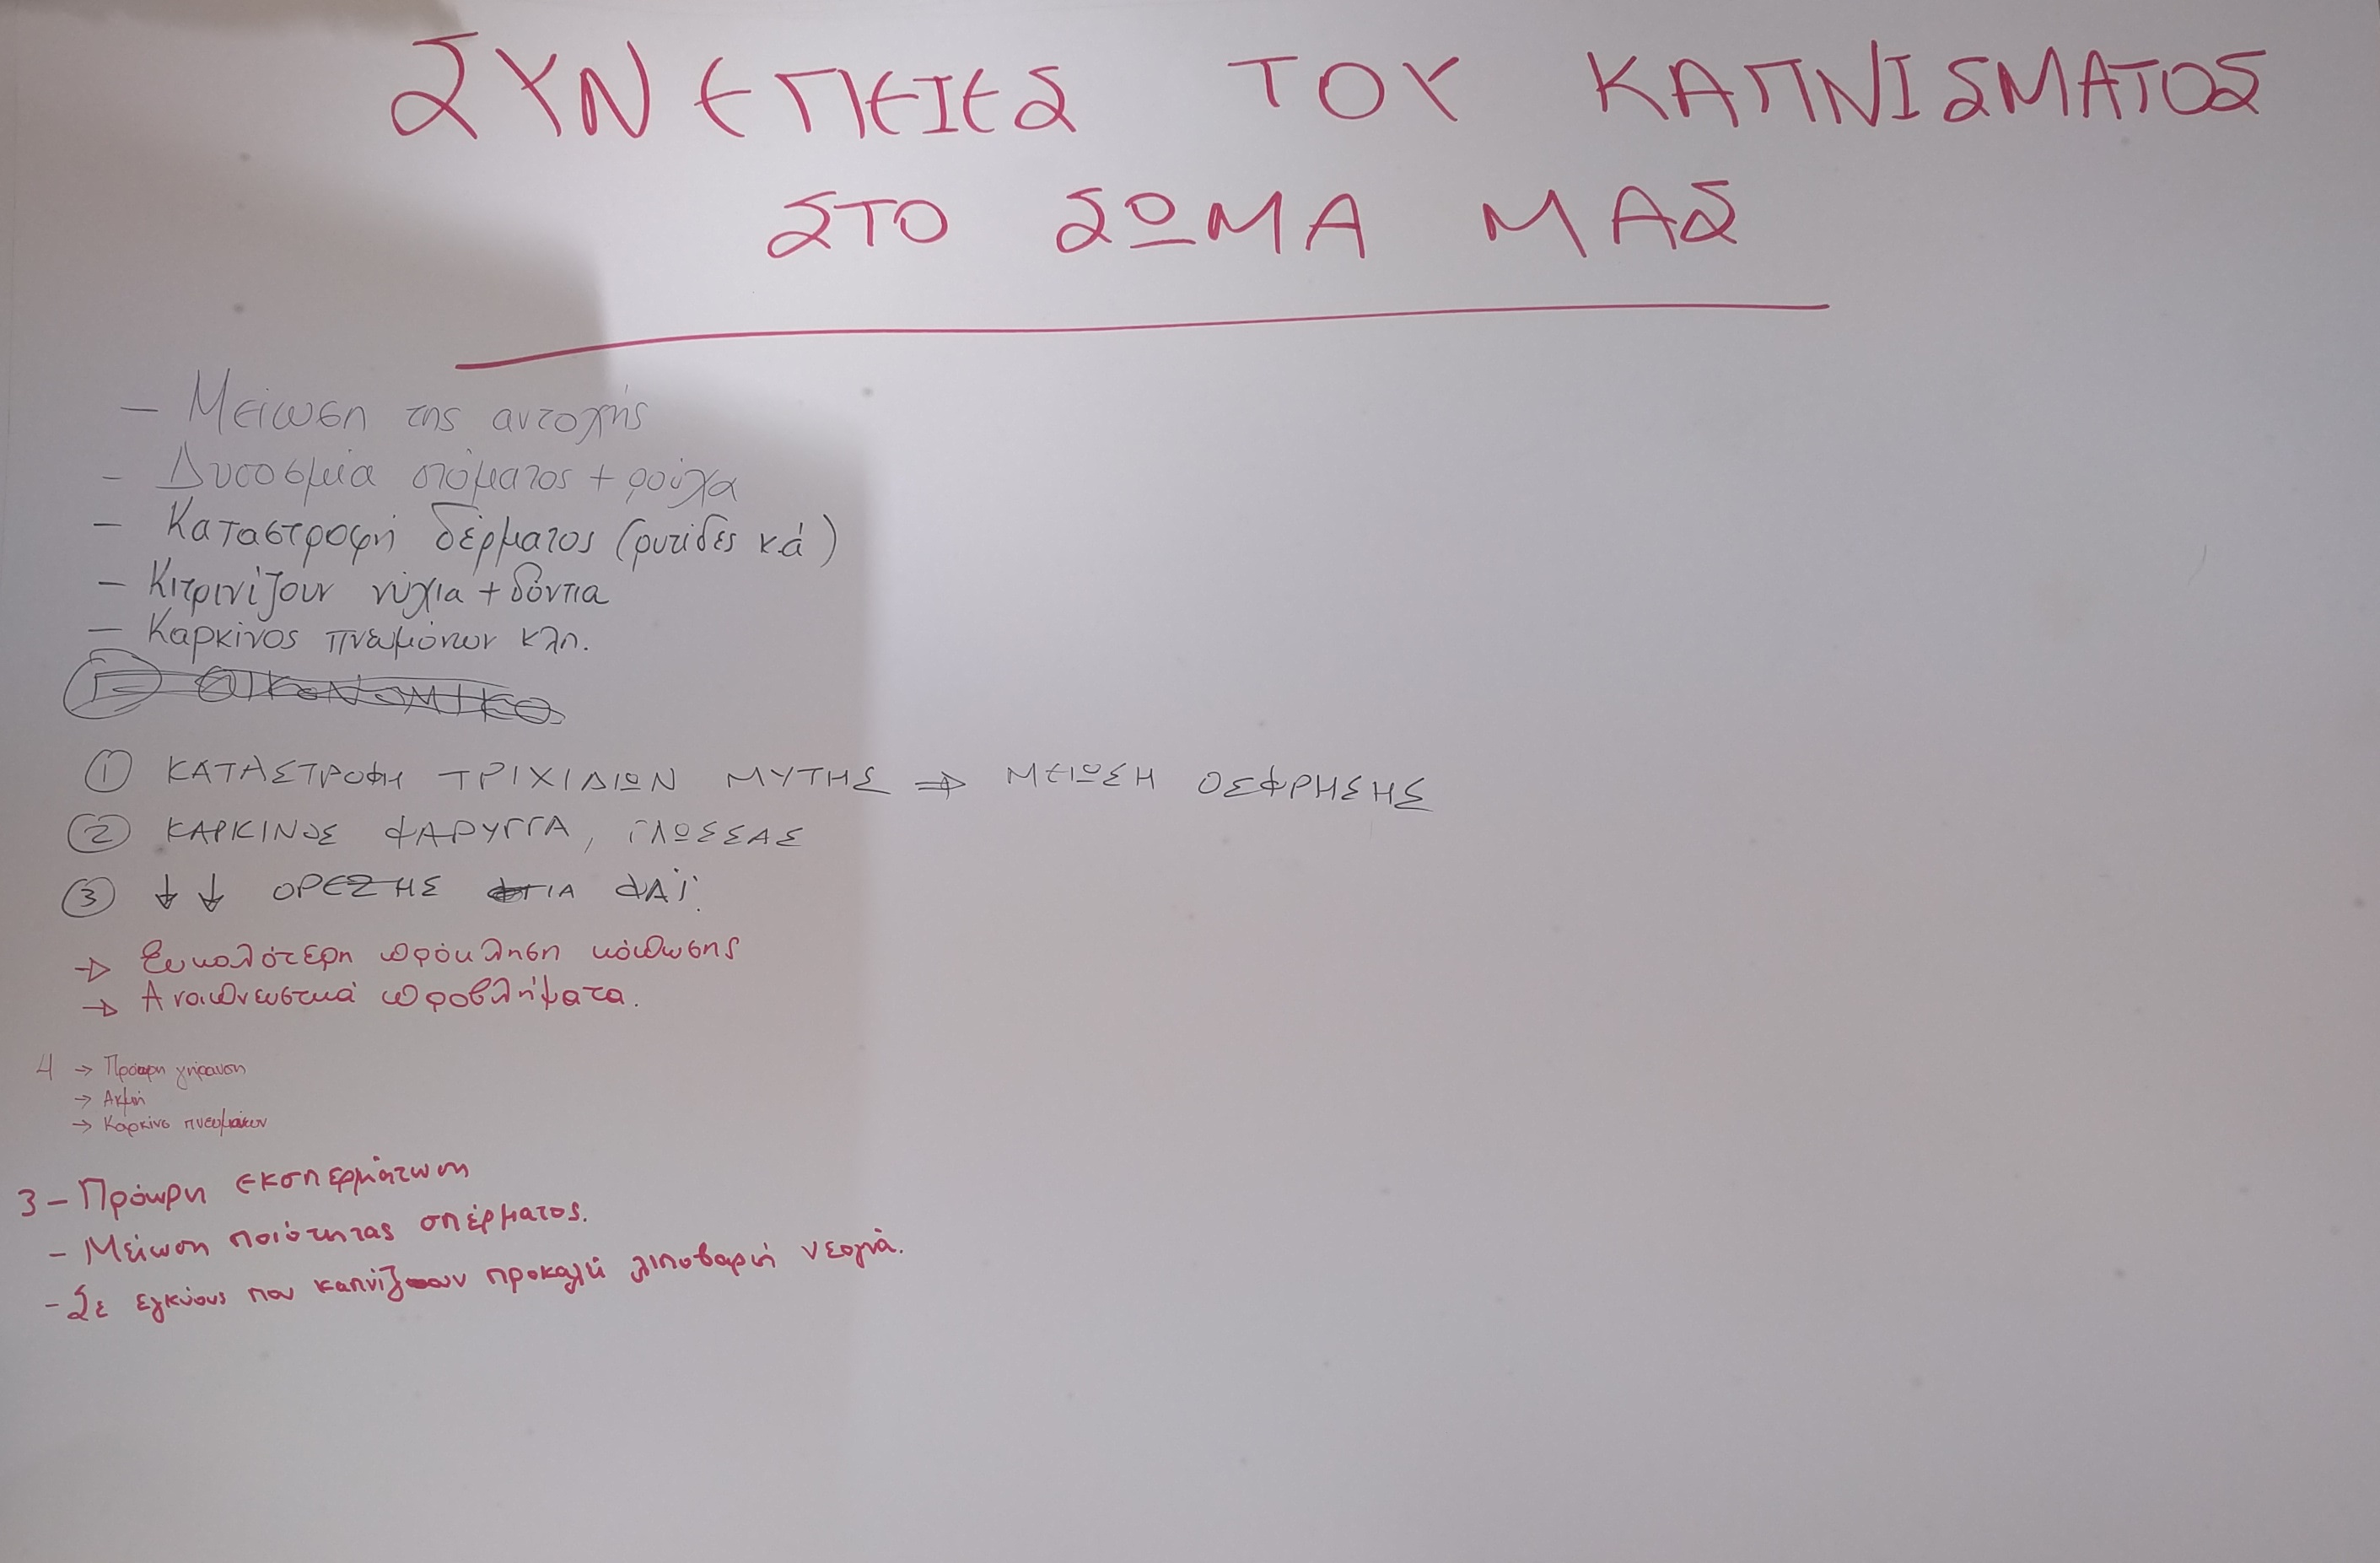 ΣΥΝΕΠΕΙΕΣ ΤΟΥ ΚΑΠΝΙΣΜΑΤΟΣ
ΣΤΟ ΣΩΜΑ ΜΑΣ
- Μείωση της αντοχής
- Δυσοσμία στόματος + ρούχα
- Καταστροφή δέρματος (ρυτίδες κ.ά)
- Κιτρινίζουν νύχια + δόντια
- Καρκίνος πνευμόνων κλπ.
ΟΙΚΟΝΟΜΙΚΟ
① ΚΑΤΑΣΤΡΟΦΗ ΤΡΙΧΙΔΙΩΝ ΜΥΤΗΣ ⇒ ΜΕΙΩΣΗ ΟΣΦΡΗΣΗΣ
② ΚΑΡΚΙΝΟΣ ΦΑΡΥΓΓΑ, ΓΛΩΣΣΑΣ
③ ↓ ↓ ΟΡΕΞΗΣ ΓΙΑ ΦΑΪ.
→ Ευκολότερη πρόκληση κόπωσης
→ Αναπνευστικά προβλήματα.
4 → Πρόωρη γήρανση
→ Ακμή
→ Καρκίνο πνευμόνων
3 - Πρόωρη εκσπερμάτωση
- Μείωση ποιότητας σπέρματος.
- Σε εγκύους που καπνίζουν προκαλεί λιποβαρή νεογνά.